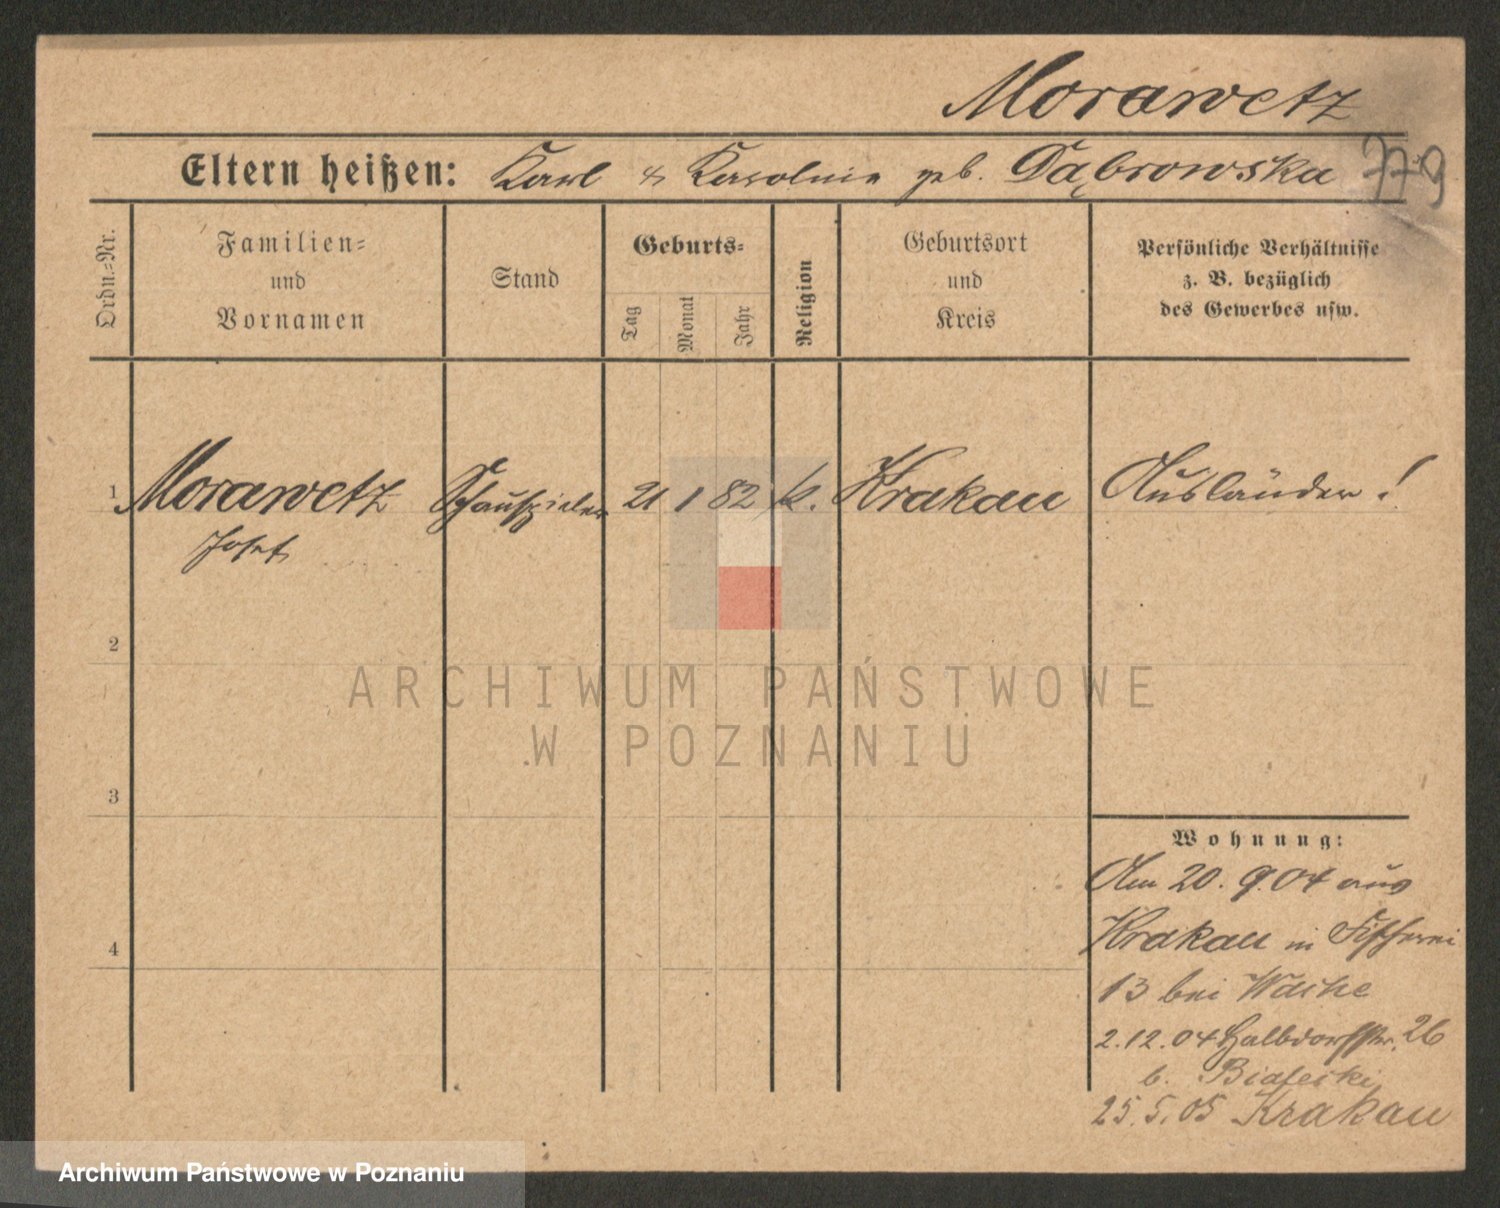 Morawetz
779
Eltern heißen: Karl & Karoline geb. Dąbrowska
Ordn.=Nr.
Familien=
und
Vornamen
Stand
Geburts=
Tag
Monat
Jahr
Religion
Geburtsort
und
Kreis
Persönliche Verhältnisse
z. B. bezüglich
des Gewerbes usw.
1 Morawetz Schauspieler 21 1 82 k. Krakau Ausländer !
Josef
2
ARCHIWUM PAŃSTWOWE
W POZNANIU
3
Wohnung:
Am 20. 9. 04 aus
Krakau in Fischerei
4
13 bei
2. 12. 04 Halbdorfstr. 26
b.
25. 5. 05 Krakau
Archiwum Państwowe w Poznaniu